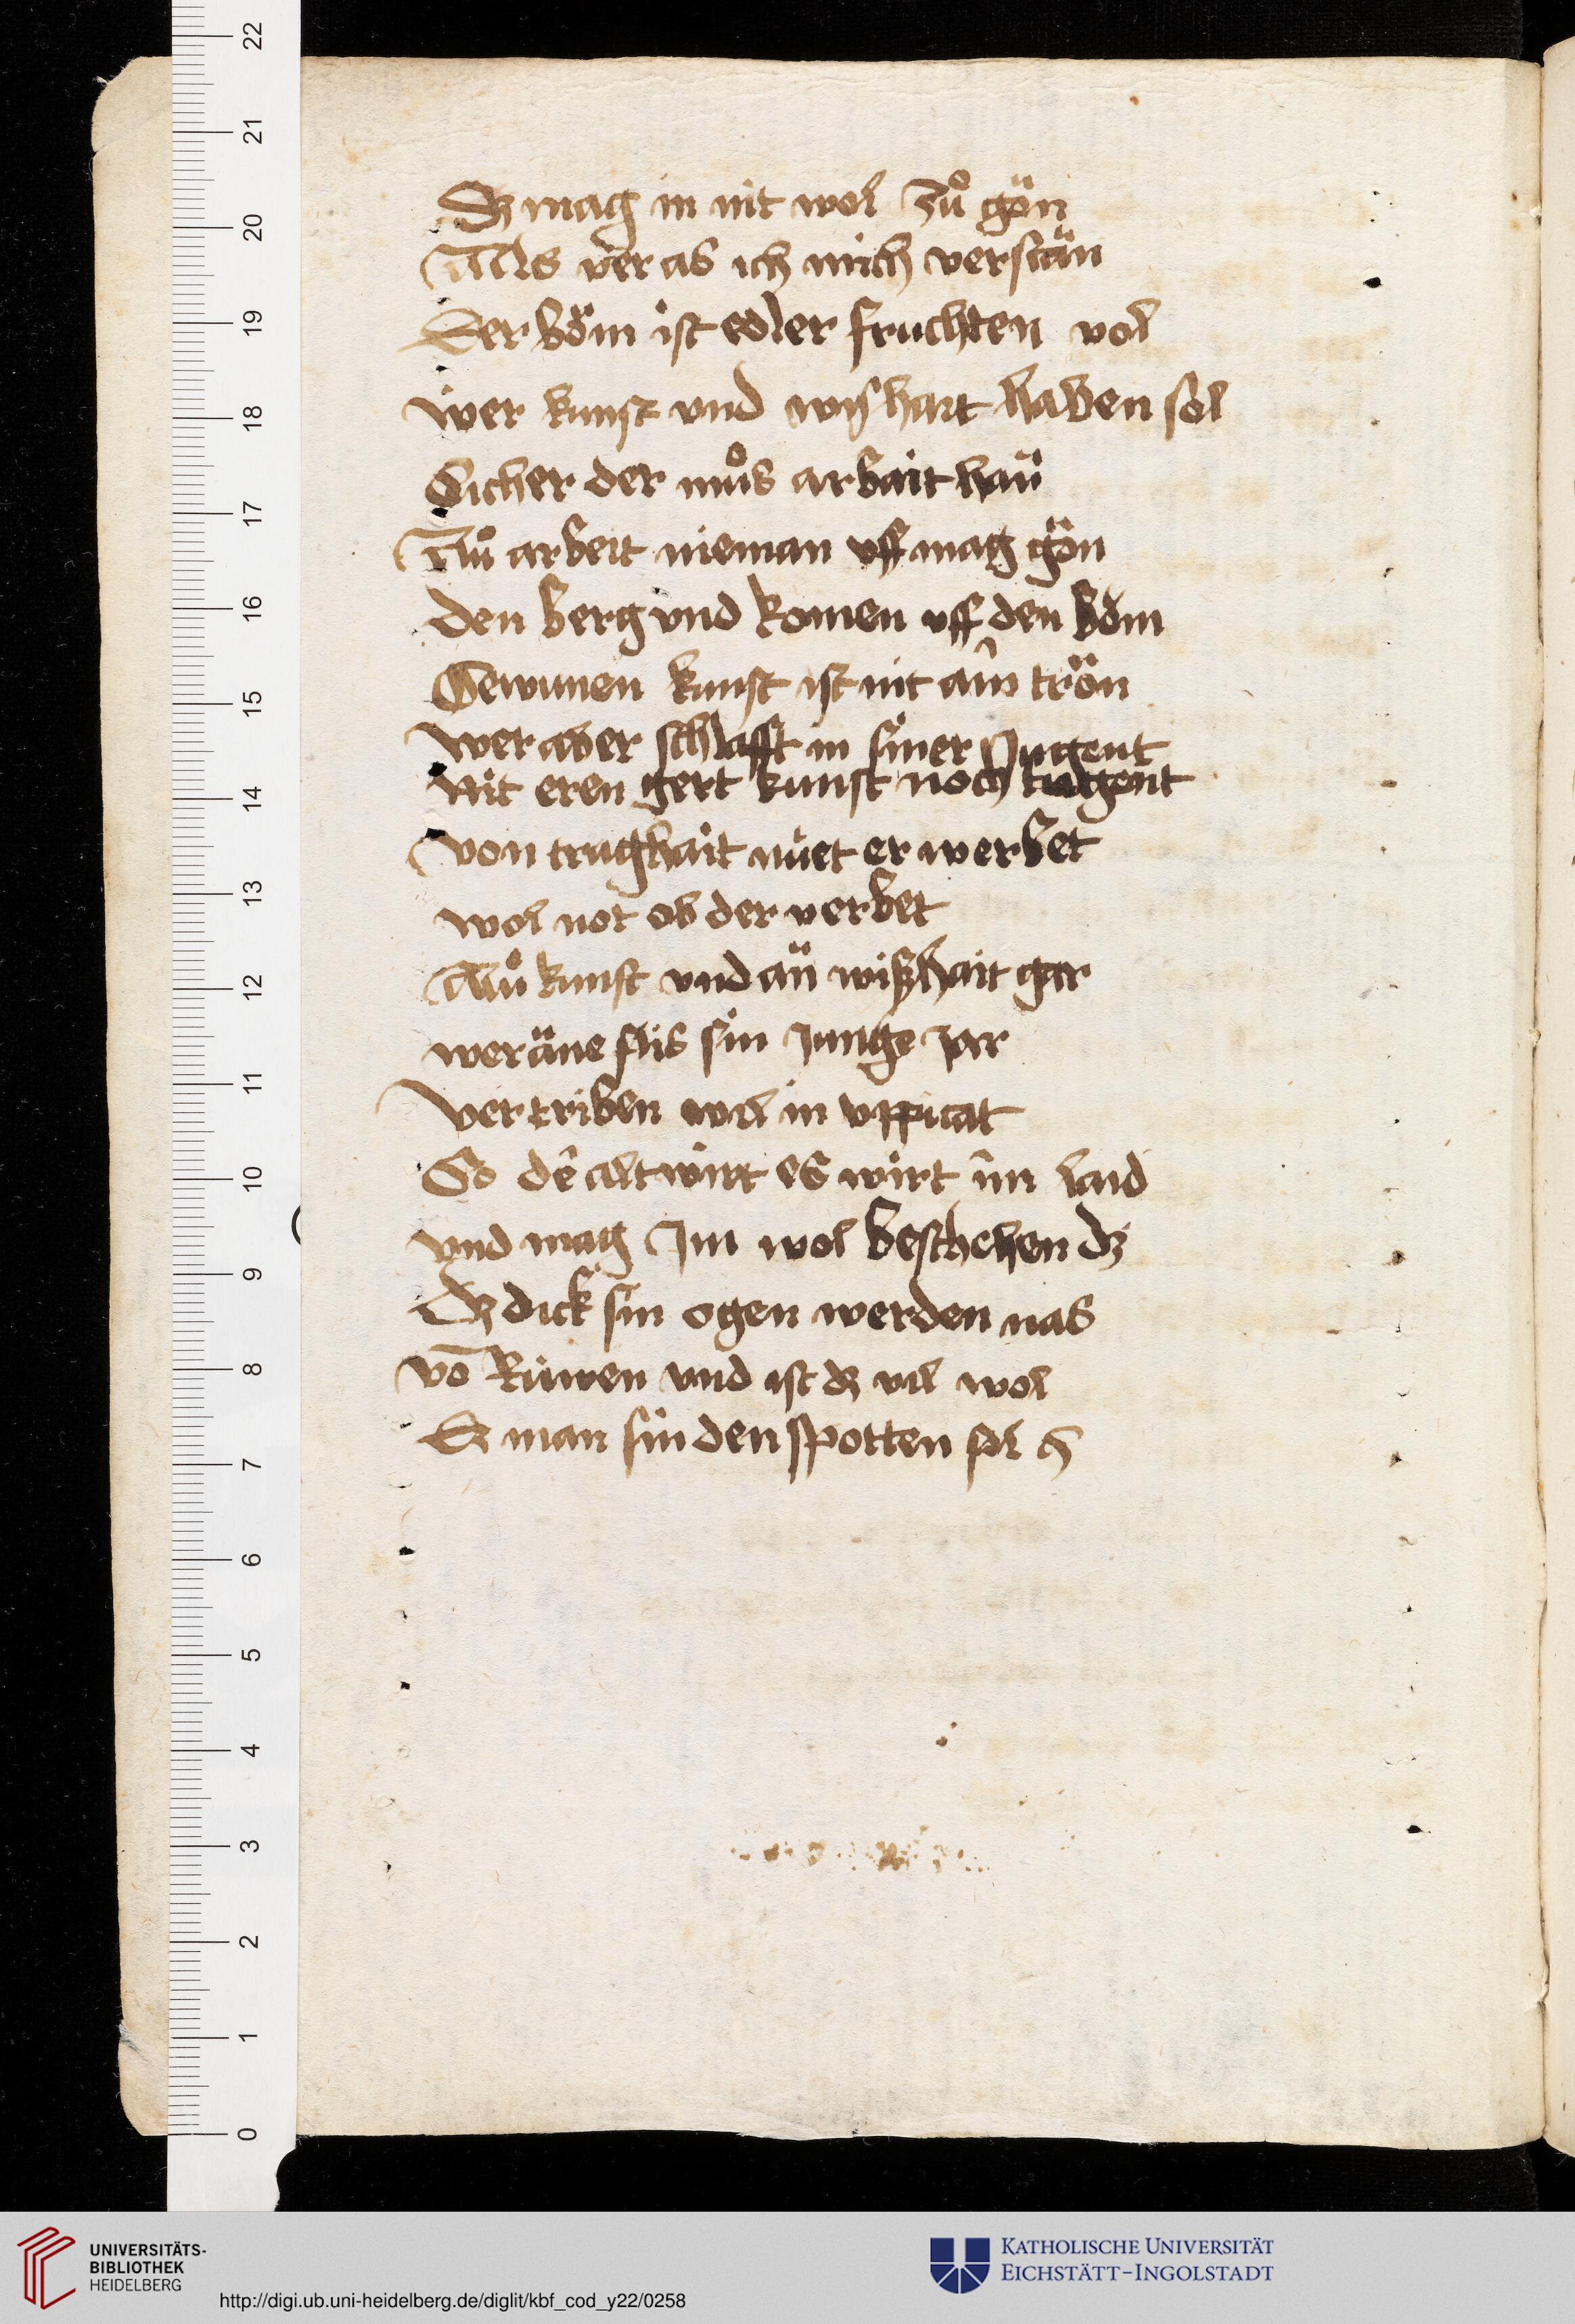 Dz mag in nit wol zuͦ gön
Als ver as ich mich verstän
Der böm ist edler fruchten vol
wer kunst vnd wyshait haben sol
Sicher der muͦs arbait hän
An arbeit nieman vff mag gön
den berg vnd komen vff den bom
Gewunen kunst ist nit ain trön
wer aber schlafft in siner Jugent
Nit eren gert kunst noch tugent
von traghait nüet er werbet
wol not ob der verbet
An kunst vnd än wißhait gar
wer äne flis sin Junge jar
vertriben wil in vppicat
So dē alt wirt es wirt im laid
vnd mag Jm wol beschehen dz
Dz dick sin ogen werden nas
vō Rüwen vnd ist dz vil wol
Dz man sin den spotten sol
22
21
20
19
18
17
16
15
14
13
12
11
10
9
8
7
6
5
4
3
2
1
0
UNIVERSITÄTS-
BIBLIOTHEK
HEIDELBERG
http://digi.ub.uni-heidelberg.de/diglit/kbf_cod_y22/0258
KATHOLISCHE UNIVERSITÄT
EICHSTÄTT-INGOLSTADT